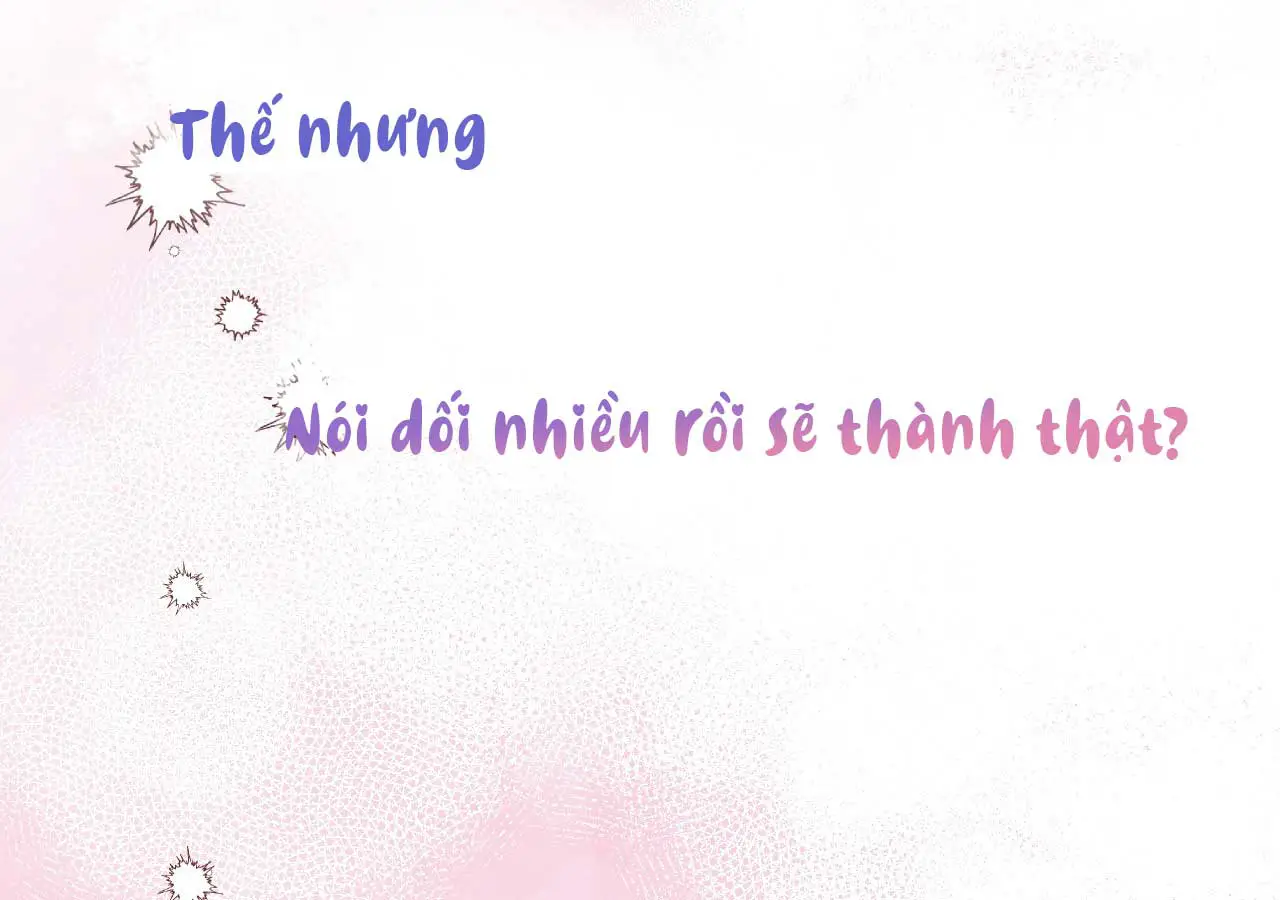 Thế nhưng
Nói dối nhiều rồi sẽ thành thật?